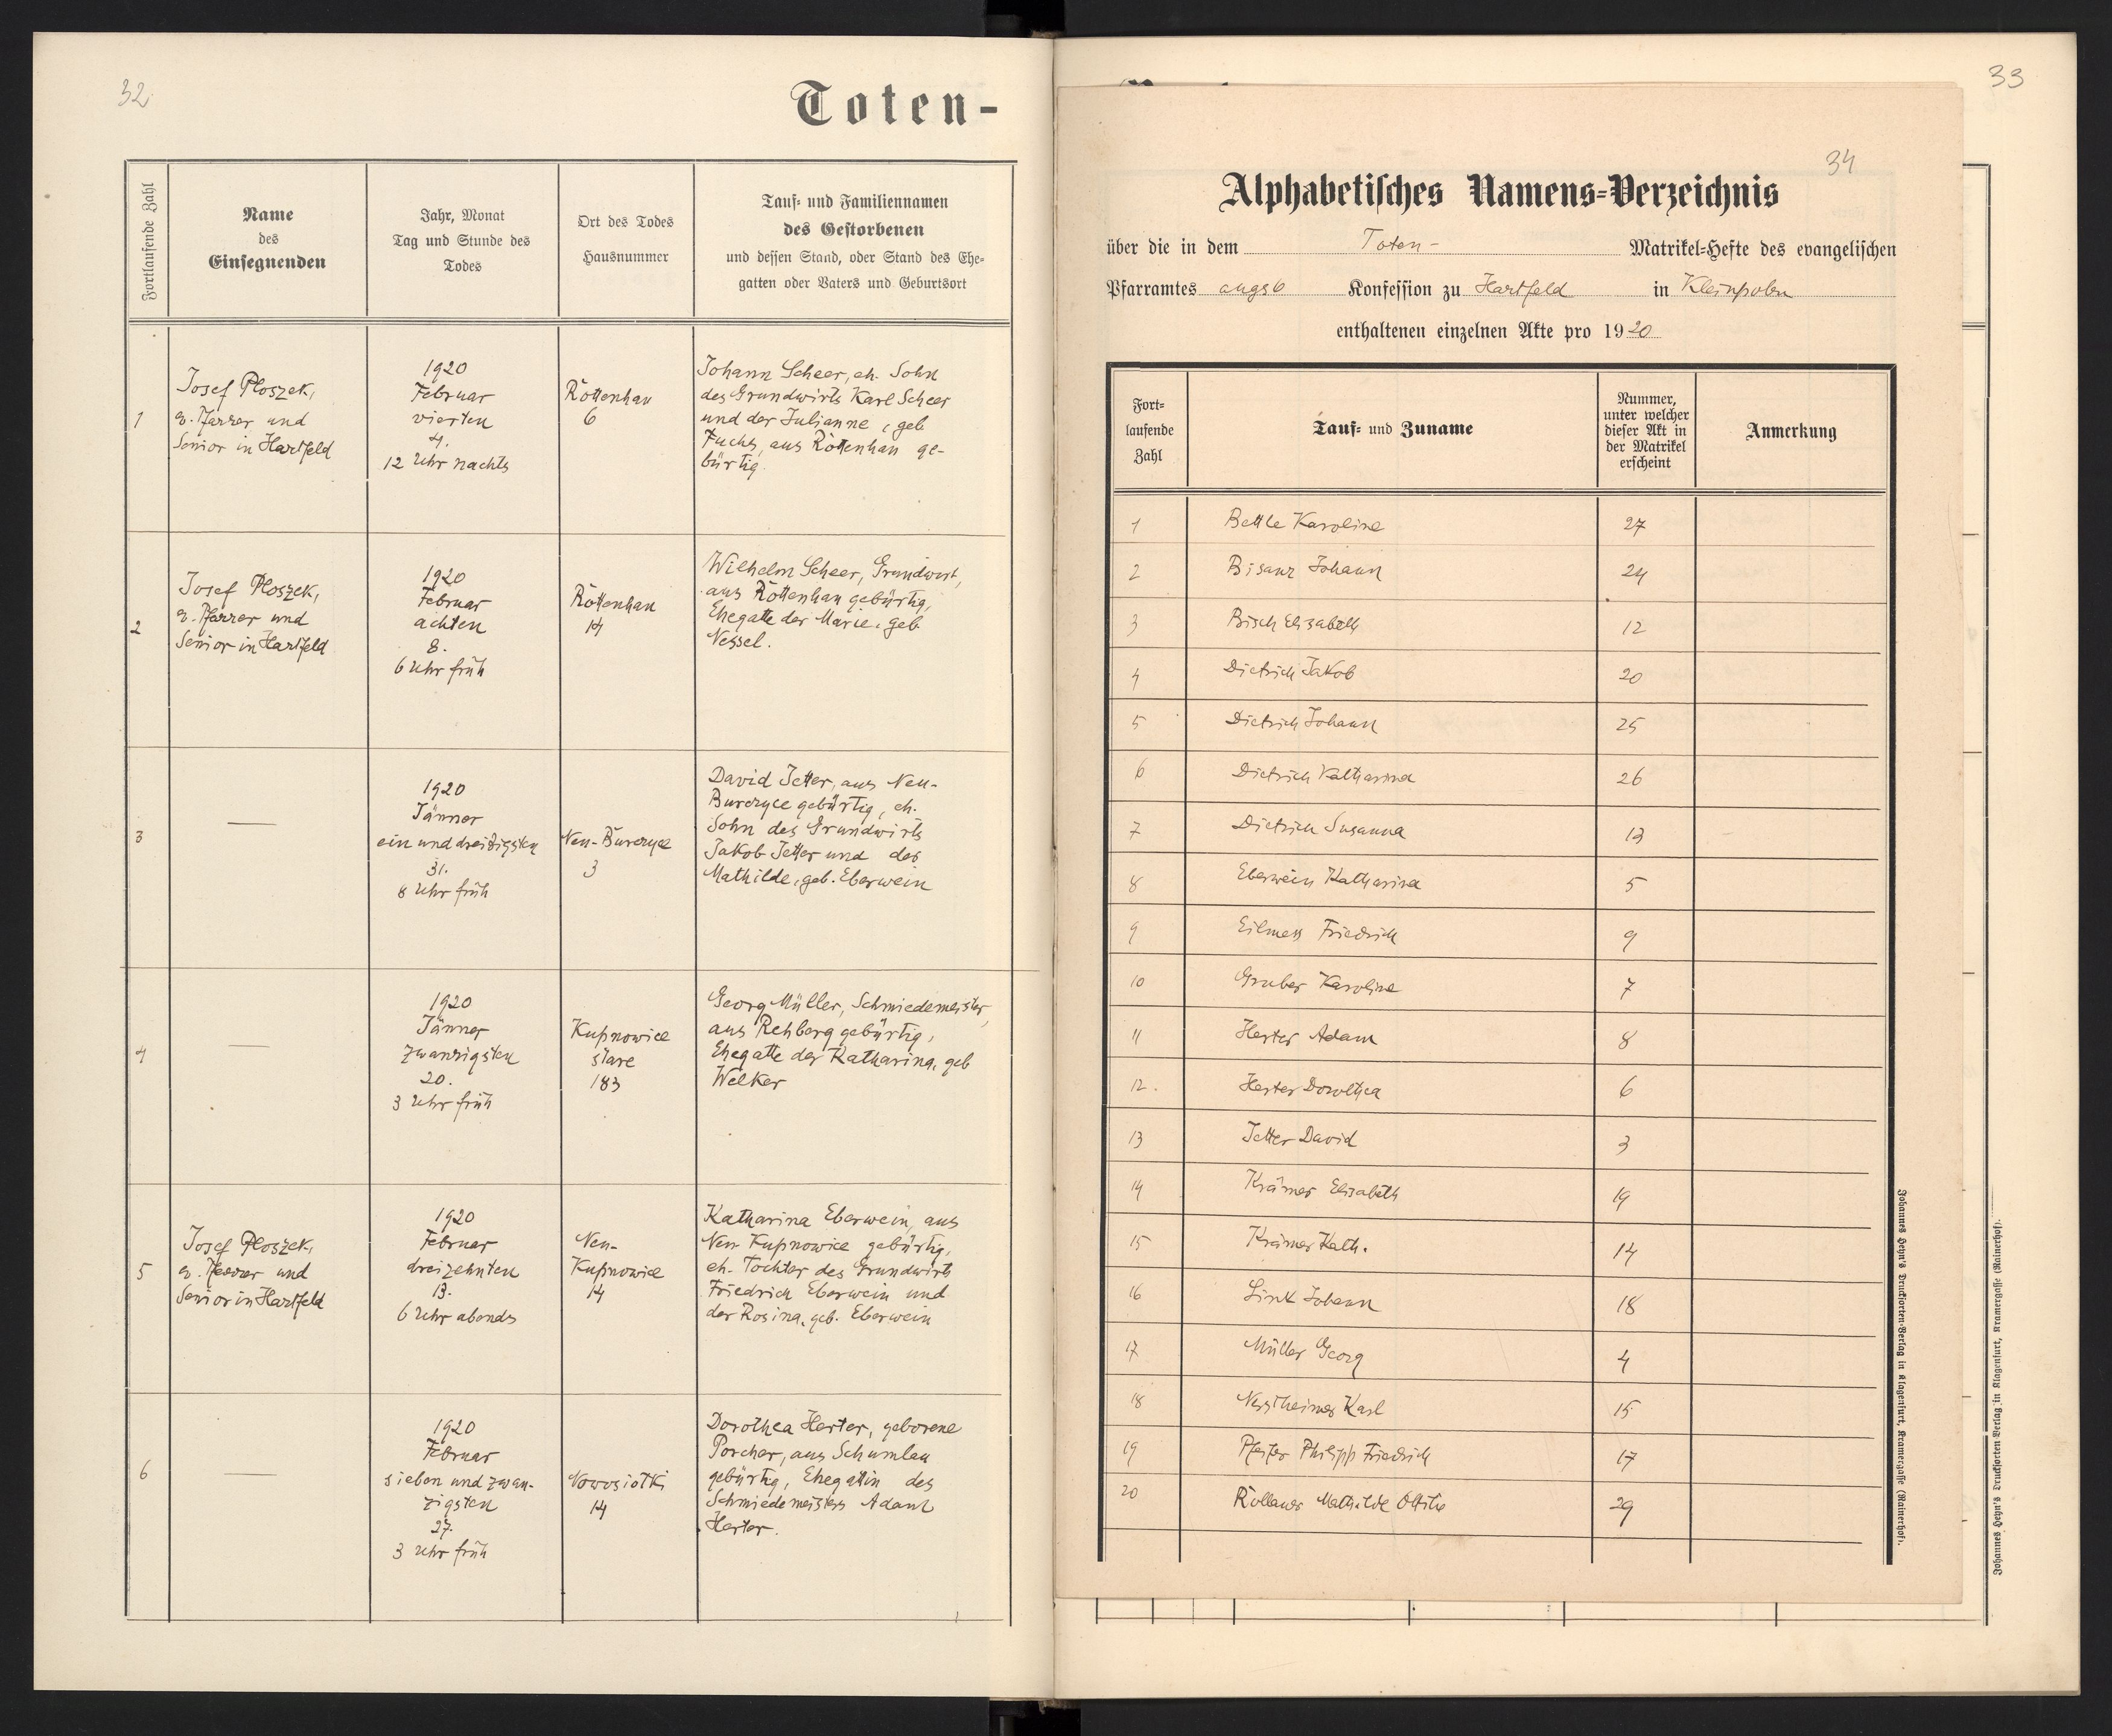 32
Toten-
Fortlaufende Zahl
Name
des
Einsegnenden
Jahr, Monat
Tag und Stunde des
Todes
Ort des Todes
Hausnummer
Tauf- und Familiennamen
des Gestorbenen
und dessen Stand, oder Stand des Ehe-
gatten oder Vaters und Geburtsort
1
Josef Ploszek,
ev. Pfarrer und
Senior in Hartfeld
1920
Februar
vierten
4.
12 Uhr nachts
Rottenhan
6
Johann Scheer, eh. Sohn
des Grundwirts Karl Scheer
und der Julianne, geb
Fuchs, aus Rottenhan ge-
bürtig.
2
Josef Ploszek,
ev. Pfarrer und
Senior in Hartfeld
1920
Februar
achten
8.
6 Uhr früh
Rottenhan
14
Wilhelm Scheer, Grundwirt,
aus Rottenhan gebürtig,
Ehegatte der Marie, geb.
Nessel.
3
—
1920
Jänner
ein und dreißigsten
31.
8 Uhr früh
Neu-Burczyce
3
David Jetter, aus Neu-
Burczyce gebürtig, eh.
Sohn des Grundwirts
Jakob Jetter und der
Mathilde, geb. Eberwein
4
—
1920
Jänner
zwanzigsten
20.
3 Uhr früh
Kupnowice
stare
183
Georg Müller, Schmiedemeister,
aus Rehberg gebürtig,
Ehegatte der Katharina, geb
Welker
5
Josef Ploszek,
ev. Pfarrer und
Senior in Hartfeld
1920
Februar
dreizehnten
13.
6 Uhr abends
Neu-
Kupnowice
14
Katharina Eberwein, aus
Neu-Kupnowice gebürtig,
eh. Tochter des Grundwirts
Friedrich Eberwein und
der Rosina, geb. Eberwein
6
—
1920
Februar
sieben und zwan-
zigsten
27.
3 Uhr früh
Nowosiolki
14
Dorothea Herter, geborene
Porcher, aus Schumlau
gebürtig, Ehegattin des
Schmiedemeisters Adam
Herter.
33
34
Alphabetisches Namens-Verzeichnis
über die in dem Toten- Matrikel-Hefte des evangelischen
Pfarramtes augsb Konfession zu Hartfeld in Kleinpolen
enthaltenen einzelnen Akte pro 1920
Fort-
laufende
Zahl
Tauf- und Zuname
Nummer,
unter welcher
dieser Akt in
der Matrikel
erscheint
Anmerkung
1 Bettle Karoline 27
2 Bisanz Johann 24
3 Bisch Elisabeth 12
4 Dietrich Jakob 20
5 Dietrich Johann 25
6 Dietrich Katharina 26
7 Dietrich Susanna 13
8 Eberwein Katharina 5
9 Eilmess Friedrich 9
10 Gruber Karoline 7
11 Herter Adam 8
12. Herter Dorothea 6
13 Jetter David 3
14 Krämer Elisabeth 19
15 Krämer Kath. 14
16 Link Johann 18
17 Müller Georg 4
18 Karl 15
19 Pfeifer Philipp Friedrich 17
20 Mathilde 29
Johannes Heyn's Drucksorten-Verlag in Klagenfurt, Kramergasse (Rainerhof).
Johannes Heyn's Drucksorten-Verlag in Klagenfurt, Kramergasse (Rainerhof).